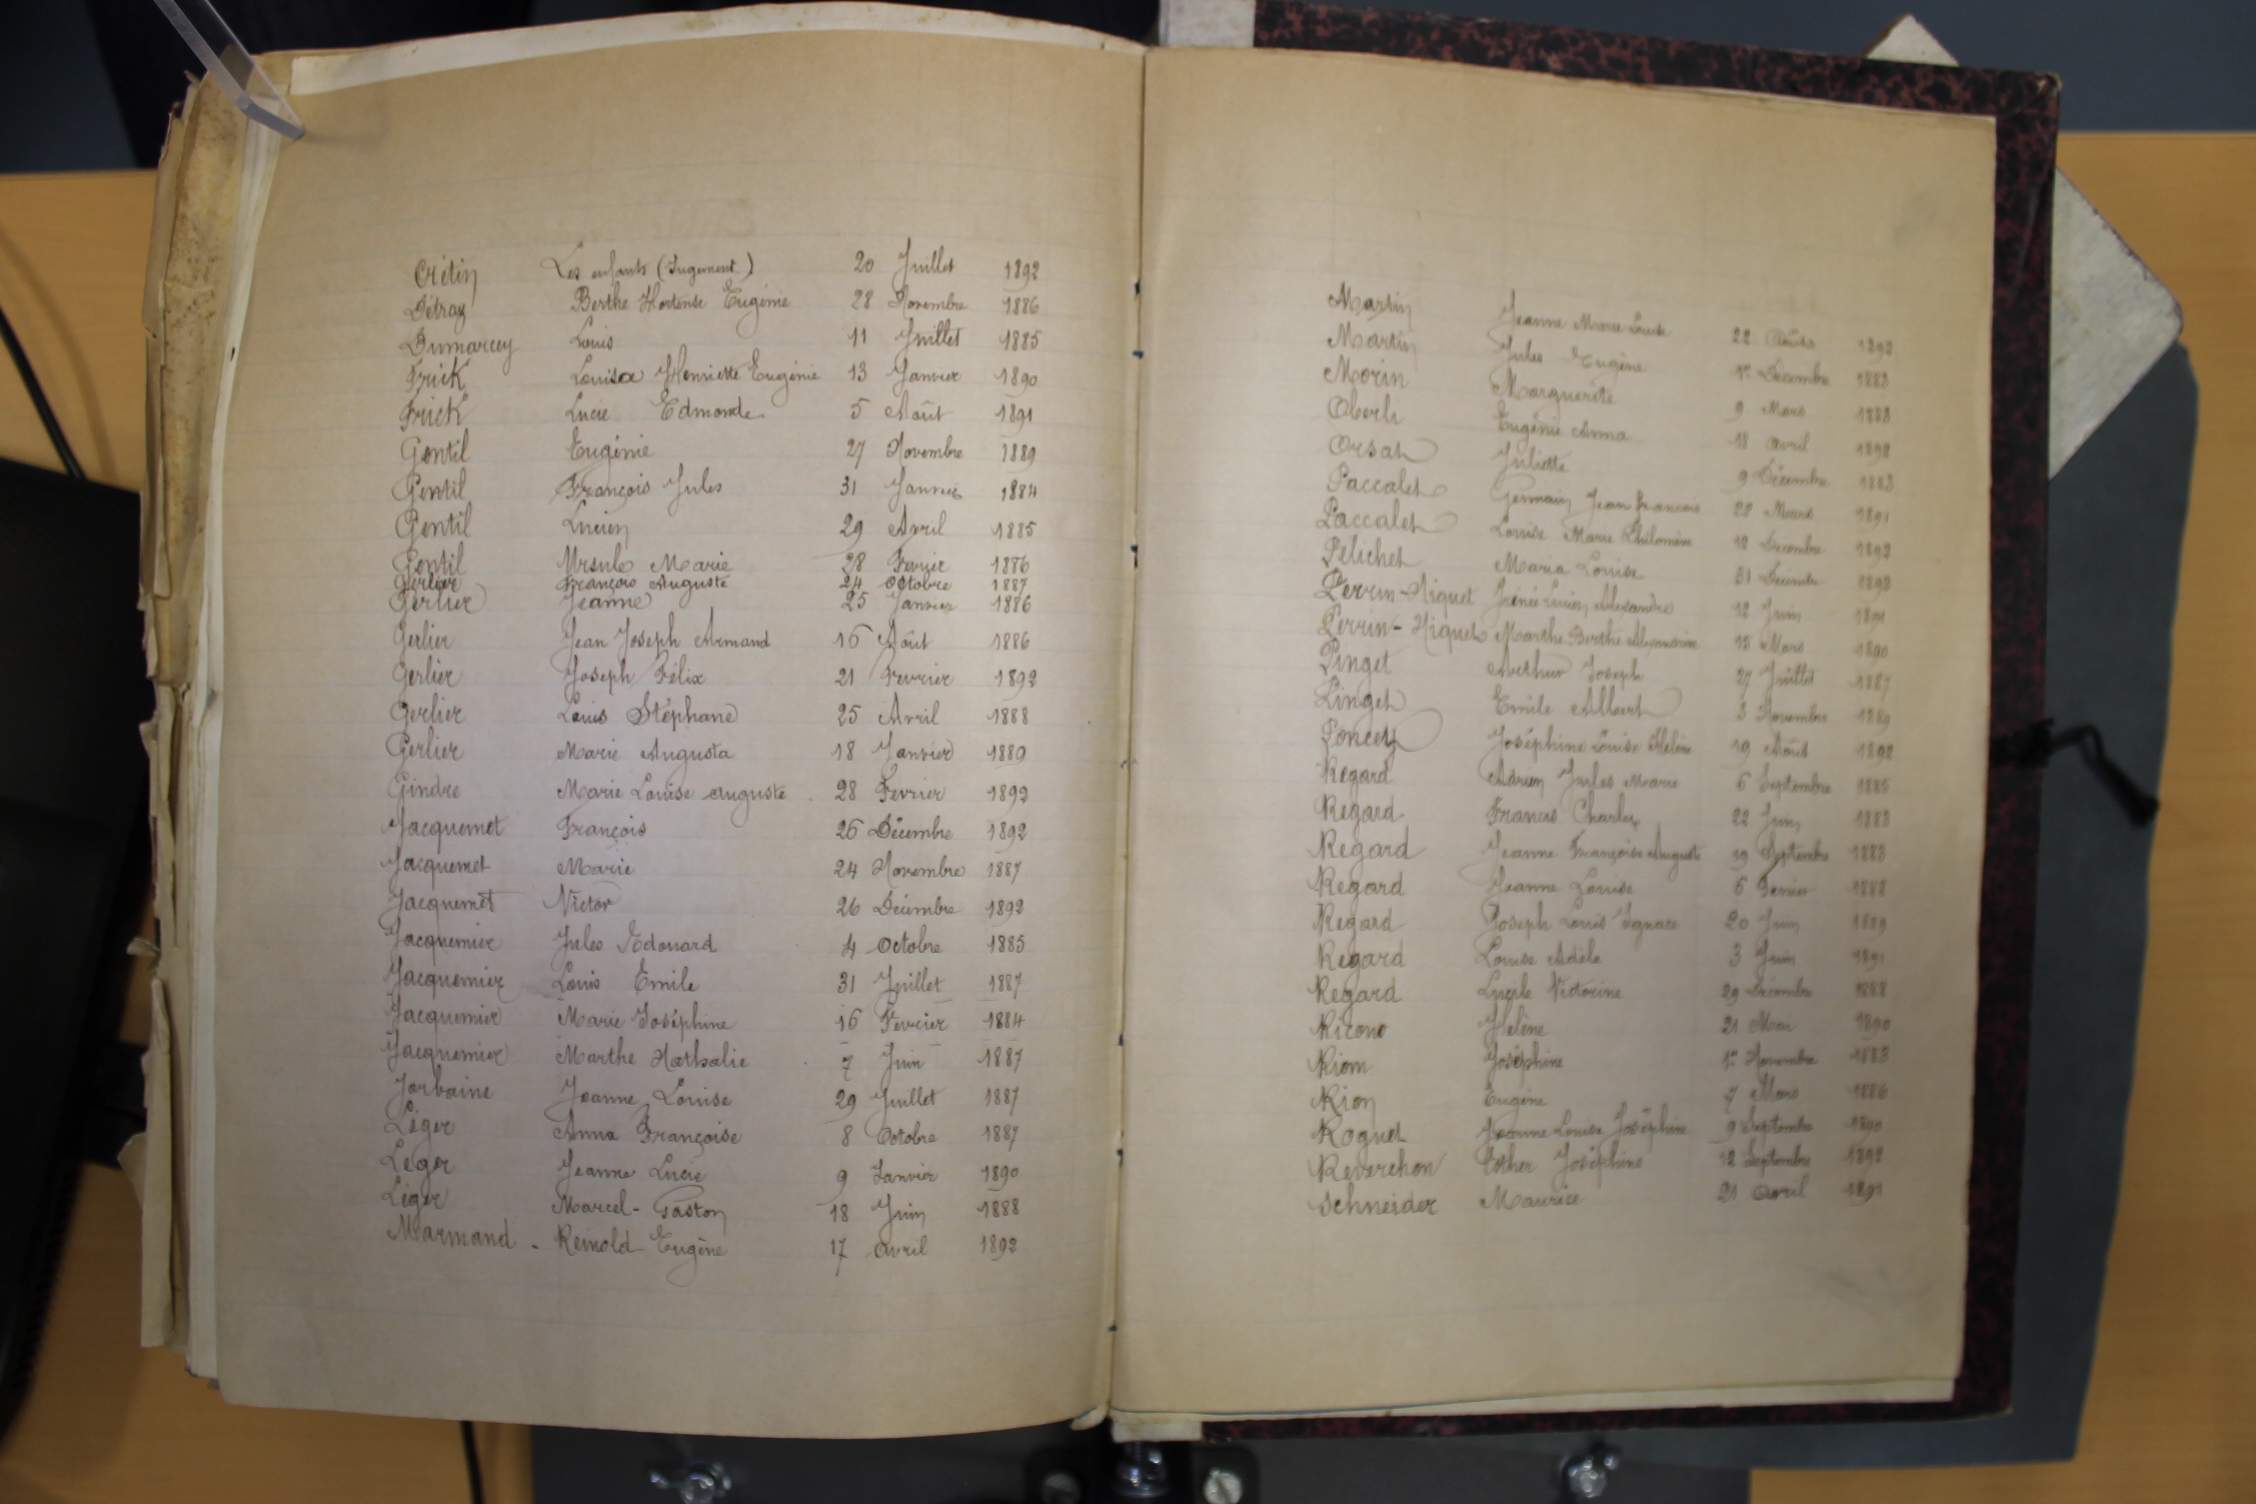 Crétin Les enfants (Jugement) 20 Juillet 1892
Détraz Berthe Hortense Eugénie 28 Novembre 1886
Dumarcey Louis 11 Juillet 1885
Frick Louisa Henriette Eugénie 13 Janvier 1890
Frick Lucie Edmonde 5 Août 1891
Gentil Eugénie 27 Novembre 1889
Gentil François Jules 31 Janvier 1884
Gentil Lucien 29 Avril 1885
Gentil Ursule Marie 28 Février 1886
Gerlier François Auguste 24 Octobre 1887
Gerlier Jeanne 25 Janvier 1886
Gerlier Jean Joseph Armand 16 Août 1886
Gerlier Joseph Félix 21 Fevrier 1892
Gerlier Louis Stéphane 25 Avril 1888
Gerlier Marie Augusta 18 Janvier 1889
Gindre Marie Louise Auguste 28 Fevrier 1892
Jacquemet François 26 Décembre 1892
Jacquemet Marie 24 Novembre 1887
Jacquemet Victor 26 Décembre 1892
Jacquemier Jules Edouard 4 Octobre 1885
Jacquemier Louis Emile 31 Juillet 1887
Jacquemier Marie Joséphine 16 Fevrier 1884
Jacquemier Marthe Nathalie 7 Juin 1887
Jorbaine Jeanne Louise 29 Juillet 1887
Léger Anna Françoise 8 Octobre 1887
Leger Jeanne Lucie 9 Janvier 1890
Léger Marcel-Gaston 18 Juin 1888
Marmand - Reinold Eugène 17 avril 1892
Martin Jeanne Marie Louise 22
Martin Jules Eugène 1er Décembre 1883
Morin Marguerite 9 Mars 1888
Oberli Eugénie Anna 18 avril
Orsat Juliette 9 Décembre 1883
Paccalet Germain Jean François 22 Mars 1891
Paccalet Louise Marie Philomène 18 Décembre
Pelichet Maria Louise 31 Décembre
Perrin-Niquet Irénée Lucien Alexandre 12 Juin 1891
Perrin-Niquet Marthe Berthe 15 Mars 1890
Pinget Arthur Joseph 27 Juillet 1887
Pinget Emile Albert 3 Novembre 1889
Poncet Joséphine Louise Hélène 19 Août 1892
Regard Adrien Jules Marie 6 Septembre 1885
Regard Francis Charles 22 Juin 1883
Regard Jeanne Françoise Auguste 19 Septembre 1883
Regard Jeanne Louise 6 1888
Regard Joseph Louis Ignace 20 Juin 1889
Regard Louise Adèle 3 Juin 1891
Regard Lucile Victorine 29 Décembre 1888
Ricono Helène 21 Mai 1890
Riom Joséphine 1er Novembre 1883
Rion Eugène 7 Mars 1886
Roguet Jeanne Louise Joséphine 9 Septembre 1890
Reverchon Esther Joséphine 12 Septembre 1892
Schneider Maurice 21 avril 1891